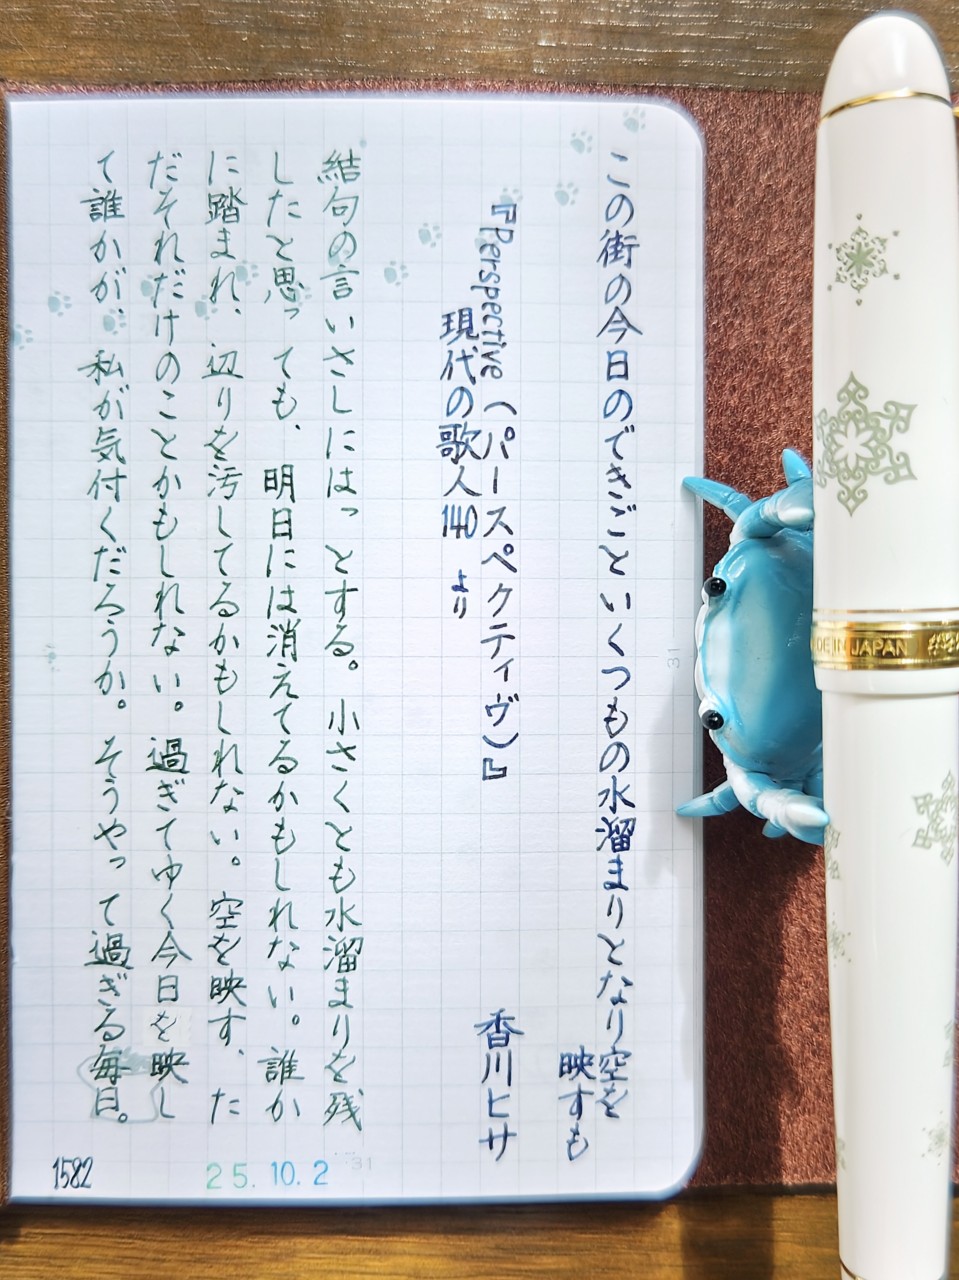 この街の今日のできごといくつもの水溜まりとなり空を
映すも
『Perspective（パースペクティヴ）』
現代の歌人140 より
香川ヒサ
結句の言いさしにはっとする。小さくとも水溜まりを残
したと思っても、明日には消えてるかもしれない。誰か
に踏まれ、辺りを汚してるかもしれない。空を映す、た
だそれだけのことかもしれない。過ぎてゆく今日を映し
て誰かが、私が気付くだろうか。そうやって過ぎる毎日。
1582
25.10.2
31
31
MADE IN JAPAN